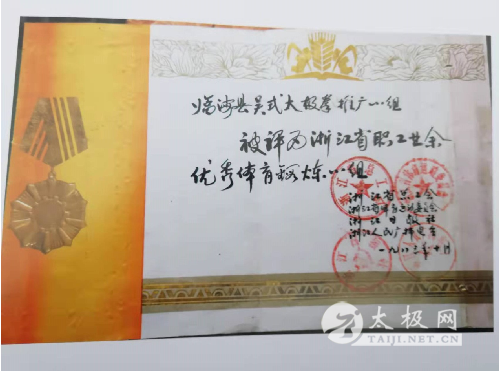 临海县吴式太极拳推广小组
被评为浙江省职工业余
优秀体育锻炼小组
浙江省总工会
浙江省体育运动委员会
浙江日报社
浙江人民广播电台
一九八三年十月
太极网
TAIJI.NET.CN